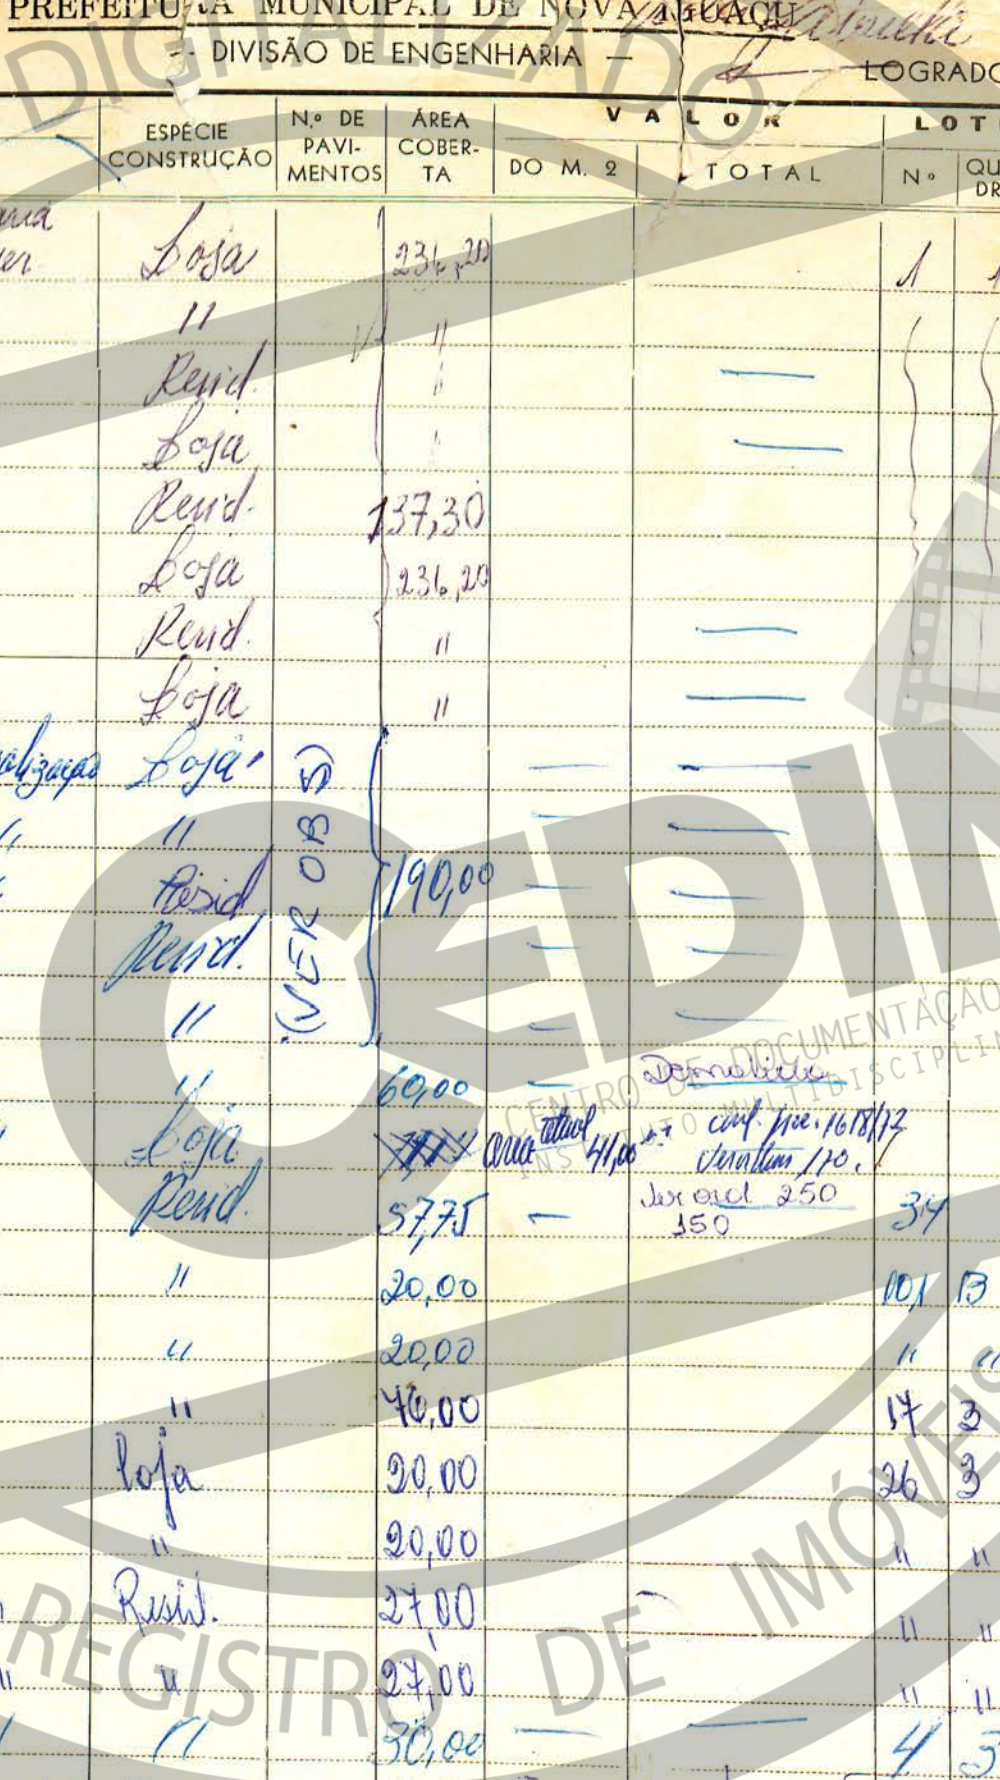 PREFEITURA MUNICIPAL DE NOVA IGUAÇU
— DIVISÃO DE ENGENHARIA —
LOGRADO
ESPÉCIE CONSTRUÇÃO N.º DE PAVI-MENTOS ÁREA COBER-TA VALOR DO M. 2 TOTAL LOT Nº QU DR
Loja 236,20 1 1
" "
Resid. "
Loja
Resid. 137,30
Loja 236,20
Resid. "
Loja "
alização Loja
" "
Resid 190,00
Resid.
"
(VER OBS)
" 60,00 — Demolida
Loja area atual 41,00 conf. proc. 1618/72
Resid. 57,75 — 250 34
150
" 20,00 101 13
" 20,00 " "
" 76,00 17 3
Loja 20,00 26 3
" 20,00 " "
Resid. 27,00 " "
" " 27,00 " "
" " 30,00 — — 4 5
DIGITALIZADO
CEDIM
CENTRO DE DOCUMENTAÇÃO
INSTITUTO MULTIDISCIPLIN
REGISTRO DE IMÓVEIS